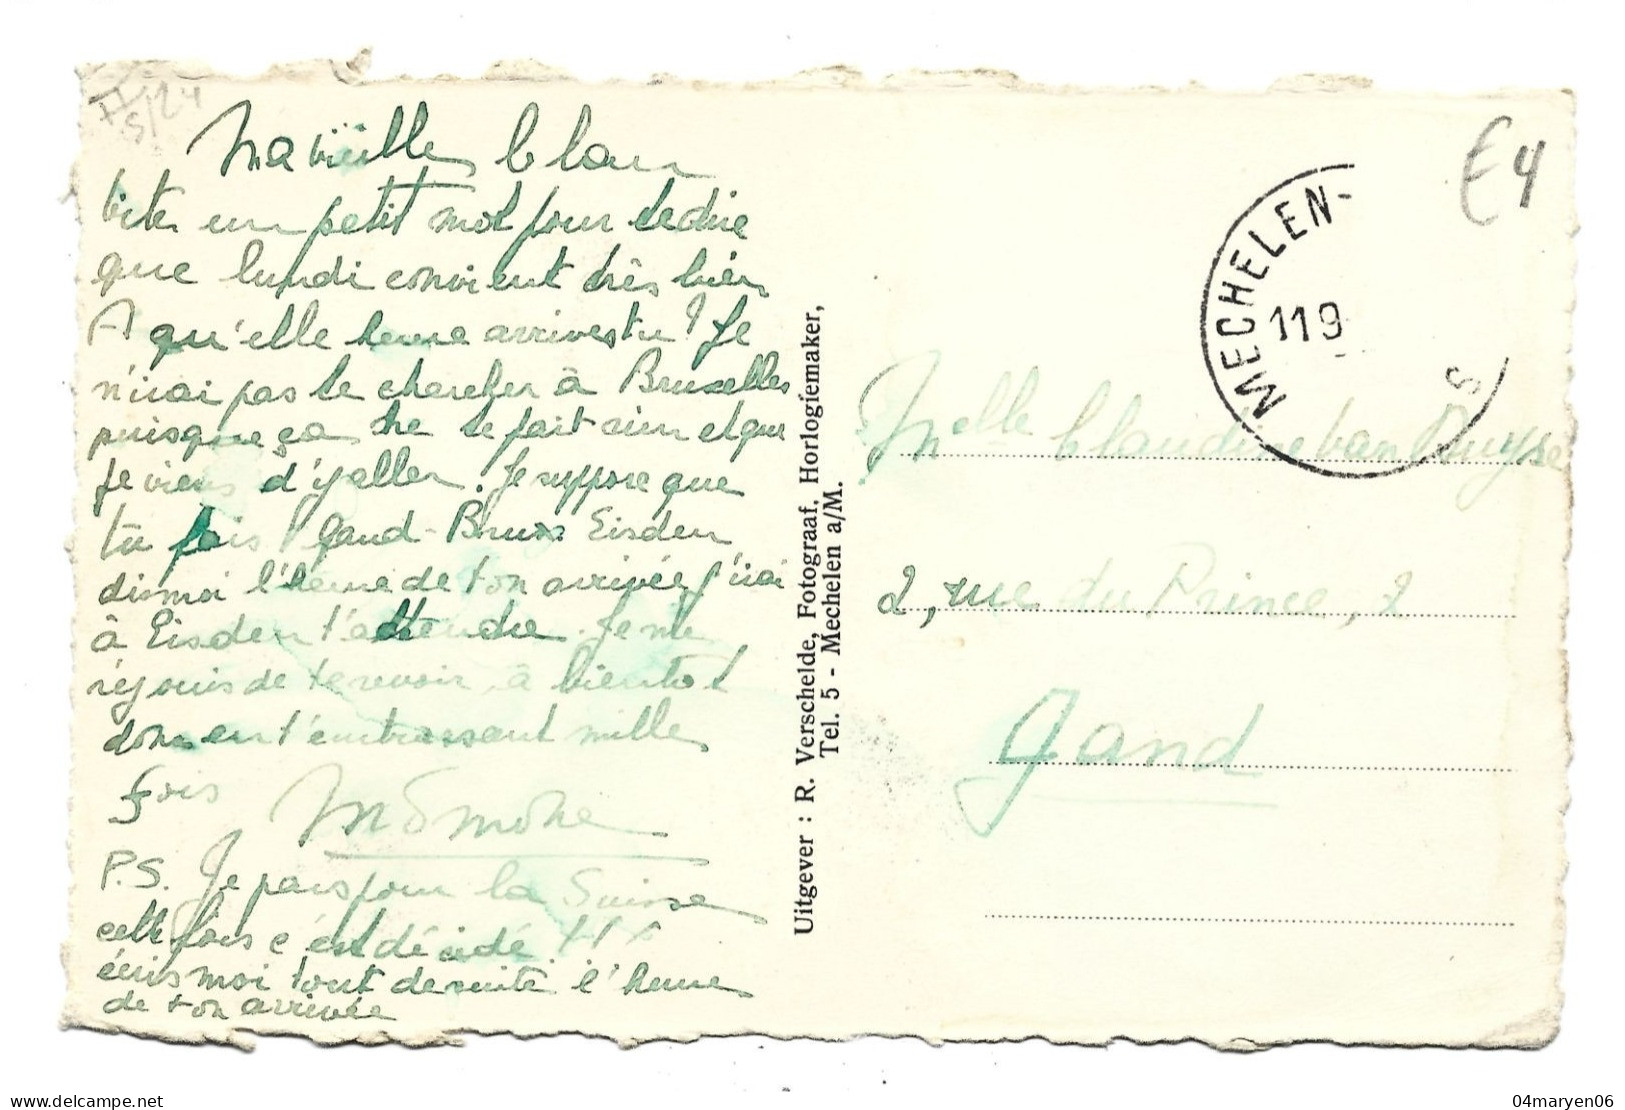 5/24
Ma vieille Clau
Vite un petit mot pour te dire
que lundi convient très bien
A qu'elle heure arrives tu? Je
n'irai pas te chercher à Bruxelles
puisque ça ne te fait rien et que
je viens d'y aller. Je suppose que
tu fais Gand-Brux Eisden
dis moi l'heure de ton arrivée j'irai
à Eisden t'attendre. Je me
réjouis de te revoir, à bientot
donc en t'embrassant mille
fois
P.S. Je pars pour la Suisse
cette fois c'est décidé !!!
écris moi tout de suite l'heure
de ton arrivée
Uitgever : R. Verschelde, Fotograaf, Horlogiemaker,
Tel. 5 - Mechelen a/M.
€4
MECHELEN-
119
S
Melle Claudine Van Duyse
2, rue du Prince, 2
Gand
delcampe.net
04maryen06